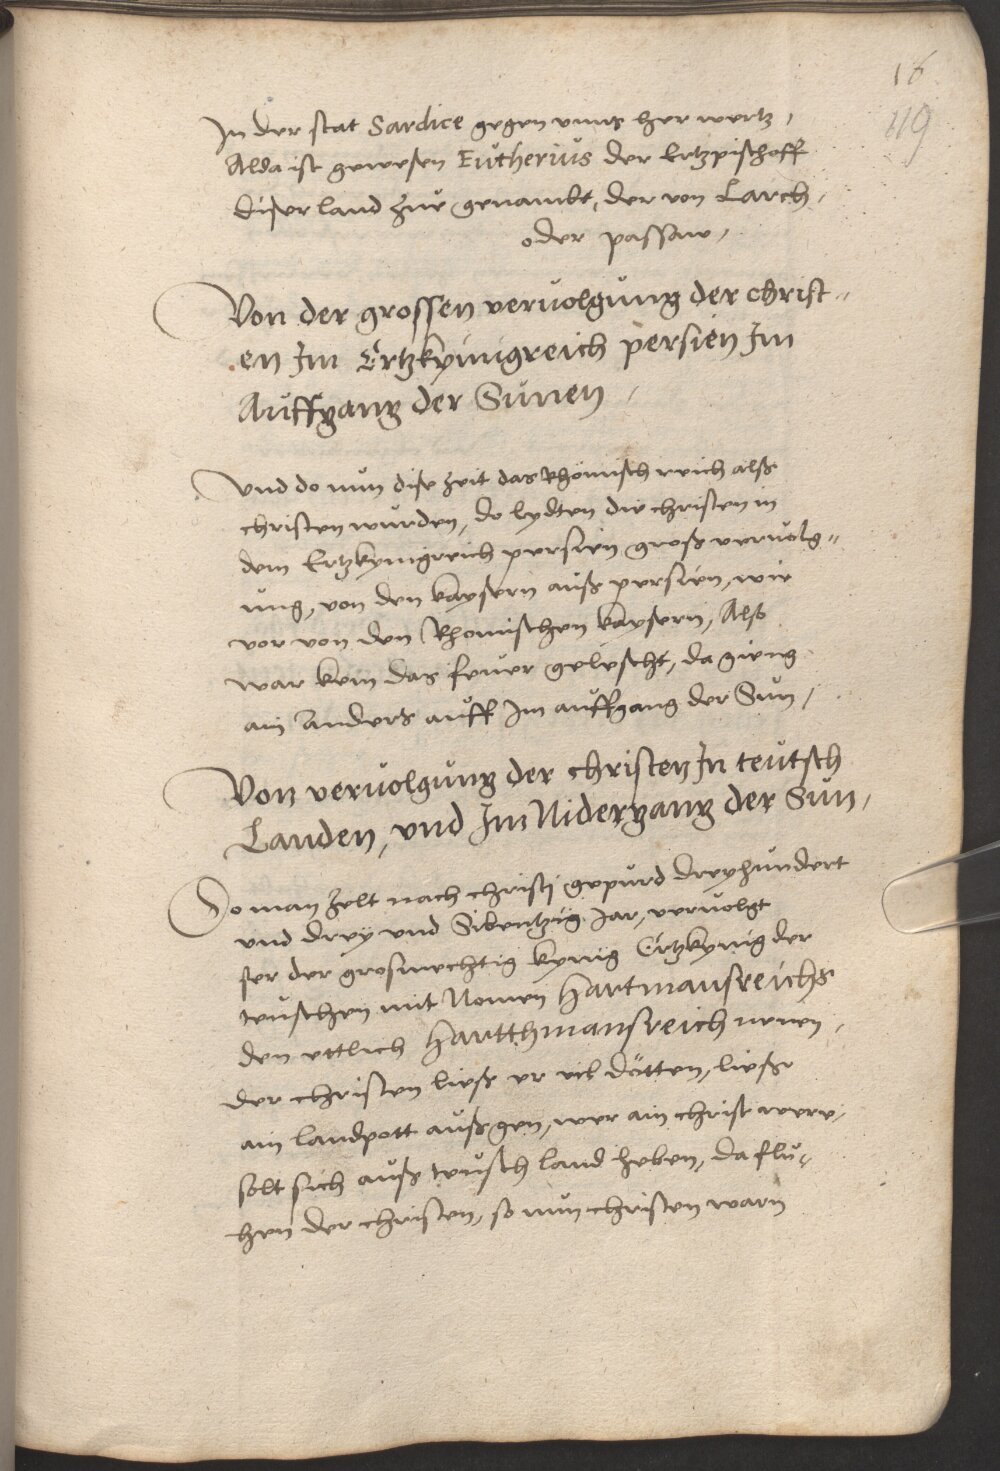 16
119
In der stat Sardice gegen unns her wertz,
Alda ist gewesen Eutherius der Ertzpischoff
diser land zue genambt, der von Larch,
oder passaw,
Von der grossen vervolgung der christ„
en Im Ertzkynigreich persien Im
Auffgang der Sunen,
Und do nun dise zeit das Rhömisch reich alß
christen wurden, do lydten die christen in
dem Ertzkynigreich persien groß vervolg„
ung, von den kaysern auß persien, wie
vor von den Rhomischen kaysern, Alß
war kein das feuer gelescht, da gieng
ain Anders auff Im auffgang der Sun,
Von vervolgung der christen In teutsch
Landen, und Im Nidergang der Sun,
Do man zelt nach christi gepurd dreyhundert
und drey und Sibentzig Jar, vervolgt
ser der grosmechtig kynig Ertzkynig der
teuschen mit Namen Hartmansreichs
den ettlich Hartthmansreich nenen,
der christen ließ er vil dötten, ließ
ain landpott auß gen, wer ain christ were,
solt sich auß teusch land heben, da flu„
hen der christen, so nun christen warn